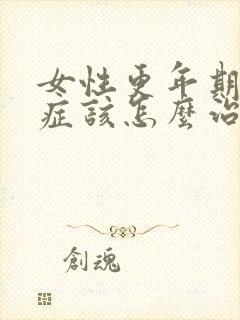 女性更年期
症該怎麼治
創魂